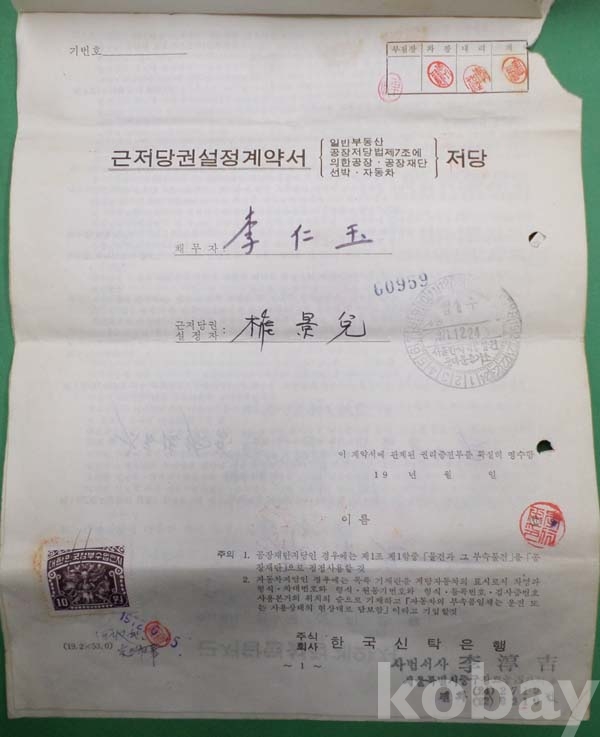 기번호
부점장 차장 대리 계
근저당권설정계약서
일반부동산
공장저당법제7조에
의한공장·공장재단
선박·자동차
저당
채무자 李仁玉
60959
근저당권
설정자 : 權景兌
이 계약서에 관계된 권리증전부를 확실히 영수함
19 년 월 일
이름
주의 1. 공장재단저당인 경우에는 제1조 제1항중 「물건과 그 부속물건」을 「공
장재단」으로 정정사용할 것
2. 자동차저당인 경우에는 목록 기재란을 저당자동차의 표시로서 차명과
형식·차대번호와 형식·원동기번호와 형식·등록번호·검사증번호
사용본거의 위치의 순으로 기재하고 「자동차의 부속품일체는 운전 또
는 사용상태의 현상대로 담보함」이라고 기입할것
10
(19.2×53.0)
주식
회사 한국신탁은행
사법서사 李淳吉
— 1 —
kobay